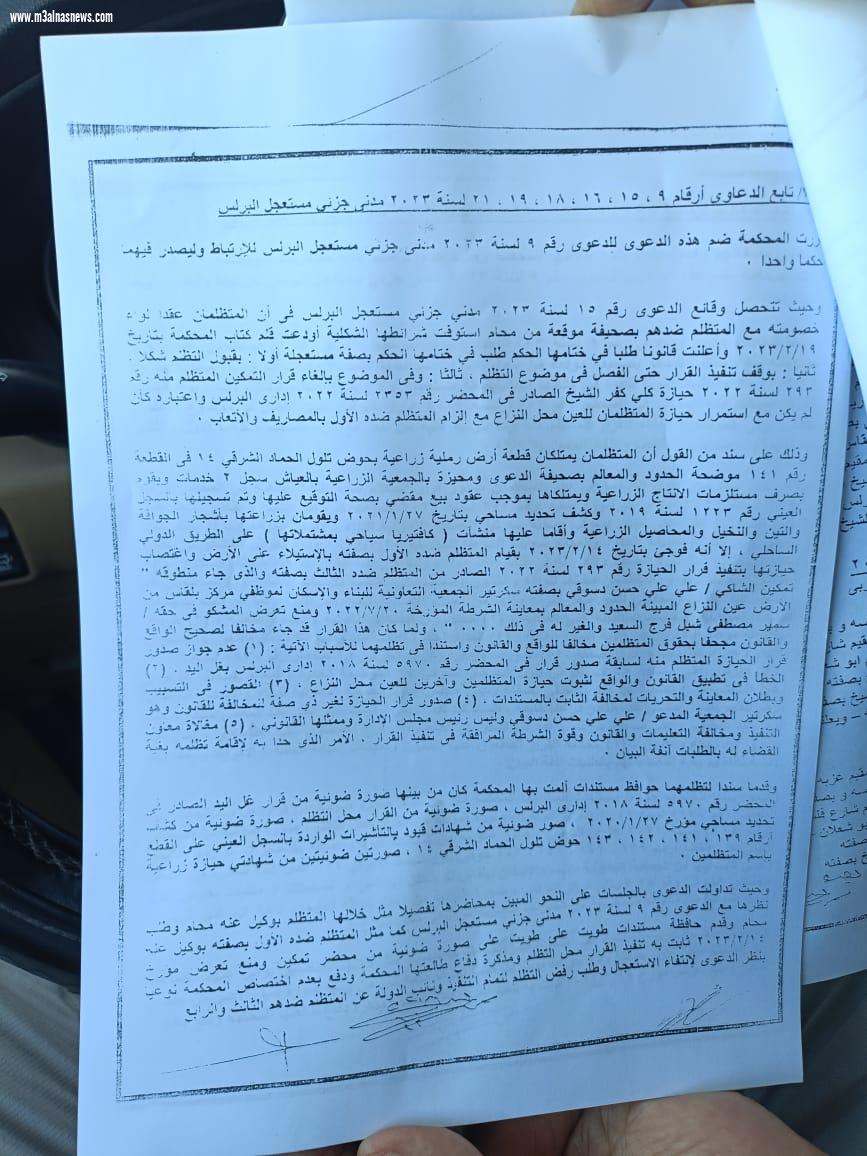 www.m3alnasnews.com
/ تابع الدعاوى أرقام ٩ ، ١٥ ، ١٦ ، ١٨ ، ١٩ ، ٢١ لسنة ٢٠٢٣ مدنى جزئي مستعجل البرلس
المحكمة ضم هذه الدعوى للدعوى رقم ٩ لسنة ٢٠٢٣ مدنى جزئي مستعجل البرلس للإرتباط وليصدر فيهما
حكما واحدا .
وحيث تتحصل وقائع الدعوى رقم ١٥ لسنة ٢٠٢٣ مدني جزئي مستعجل البرلس فى أن المتظلمان عقدا لواء
خصومته مع المتظلم ضدهم بصحيفة موقعة من محام استوفت شرائطها الشكلية أودعت قلم كتاب المحكمة بتاريخ
٢٠٢٣/٢/١٩ وأعلنت قانونا طلبا في ختامها الحكم طلب في ختامها الحكم بصفة مستعجلة أولا : بقبول التظلم شكلا .
ثانيا : بوقف تنفيذ القرار حتى الفصل فى موضوع التظلم . ثالثا : وفى الموضوع بإلغاء قرار التمكين المتظلم منه رقم
٢٩٣ لسنة ٢٠٢٢ حيازة كلي كفر الشيخ الصادر في المحضر رقم ٢٣٥٣ لسنة ٢٠٢٢ إدارى البرلس واعتباره كأن
لم يكن مع استمرار حيازة المتظلمان للعين محل النزاع مع إلزام المتظلم ضده الأول بالمصاريف والأتعاب .
وذلك على سند من القول أن المتظلمان يمتلكان قطعة أرض رملية زراعية بحوض تلول الحماد الشرقي ١٤ فى القطعة
رقم ١٤١ موضحة الحدود والمعالم بصحيفة الدعوى ومحيزة بالجمعية الزراعية بالعياش سجل ٢ خدمات ويقوم
بصرف مستلزمات الانتاج الزراعية ويمتلكاها بموجب عقود بيع مقضي بصحة التوقيع عليها وتم تسجينها بالسجل
العيني رقم ١٢٢٣ لسنة ٢٠١٩ وكشف تحديد مساحي بتاريخ ٢٠٢١/١/٢٧ ويقومان بزراعتها بأشجار الجوافة
والتين والنخيل والمحاصيل الزراعية وأقاما عليها منشآت ( كافتيريا سياحي بمشتملاتها ) على الطريق الدولي
الساحلي ، إلا أنه فوجئ بتاريخ ٢٠٢٣/٢/١٤ بقيام المتظلم ضده الأول بصفته بالإستيلاء على الأرض واغتصاب
حيازتها بتنفيذ قرار الحيازة رقم ٢٩٣ لسنة ٢٠٢٢ الصادر من المتظلم ضده الثالث بصفته والذى جاء منطوقه "
تمكين الشاكي / علي علي حسن دسوقي بصفته سكرتير الجمعية التعاونية للبناء والإسكان لموظفي مركز بلقاس من
الارض عين النزاع المبينة الحدود والمعالم بمعاينة الشرطة المؤرخة ٢٠٢٢/٧/٢٠ ومنع تعرض المشكو في حقه /
سمير مصطفى شبل فرج السعيد والغير له فى ذلك .... " ، ولما كان هذا القرار قد جاء مخالفا لصحيح الواقع
والقانون مجحفا بحقوق المتظلمين مخالفا للواقع والقانون واستندا في تظلمهما للأسباب الآتية : (١) عدم جواز صدور
قرار الحيازة المتظلم منه لسابقة صدور قرار في المحضر رقم ٥٩٧٠ لسنة ٢٠١٨ إدارى البرلس بغل اليد . (٢)
الخطأ فى تطبيق القانون والواقع لثبوت حيازة المتظلمين وآخرين للعين محل النزاع . (٣) القصور فى التسبيب
وبطلان المعاينة والتحريات لمخالفة الثابت بالمستندات . (٤) صدور قرار الحيازة لغير ذي صفة للمخالفة للقانون وهو
سكرتير الجمعية المدعو / علي علي حسن دسوقي وليس رئيس مجلس الإدارة وممثلها القانوني . (٥) مغالاة معاون
التنفيذ ومخالفة التعليمات والقانون وقوة الشرطة المرافقة في تنفيذ القرار . الأمر الذى حدا به لإقامة تظلمه بغية
القضاء له بالطلبات آنفة البيان .
وقدما سندا لتظلمهما حوافظ مستندات ألمت بها المحكمة كان من بينها صورة ضوئية من قرار غل اليد الصادر فى
المحضر رقم ٥٩٧٠ لسنة ٢٠١٨ إدارى البرلس ، صورة ضوئية من القرار محل التظلم ، صورة ضوئية من كشف
تحديد مساحي مؤرخ ٢٠٢٠/١/٢٧ ، صور ضوئية من شهادات قيود بالتأشيرات الواردة بالسجل العيني على القطع
أرقام ١٣٩ ، ١٤١ ، ١٤٢ ، ١٤٣ حوض تلول الحماد الشرقي ١٤ ، صورتين ضوئيتين من شهادتي حيازة زراعية
باسم المتظلمين .
وحيث تداولت الدعوى بالجلسات على النحو المبين بمحاضرها تفصيلا مثل خلالها المتظلم بوكيل عنه محام وطلب
نظرها مع الدعوى رقم ٩ لسنة ٢٠٢٣ مدني جزئي مستعجل البرلس كما مثل المتظلم ضده الأول بصفته بوكيل عنه
محام وقدم حافظة مستندات طويت على طويت على صورة ضوئية من محضر تمكين ومنع تعرض مؤرخ
٢٠٢٣/٢/١٤ ثابت به تنفيذ القرار محل التظلم ومذكرة دفاع طالعتها المحكمة ودفع بعدم اختصاص المحكمة نوعيا
بنظر الدعوى لإنتفاء الاستعجال وطلب رفض التظلم لتمام التنفيذ ونائب الدولة عن المتظلم ضدهم الثالث والرابع